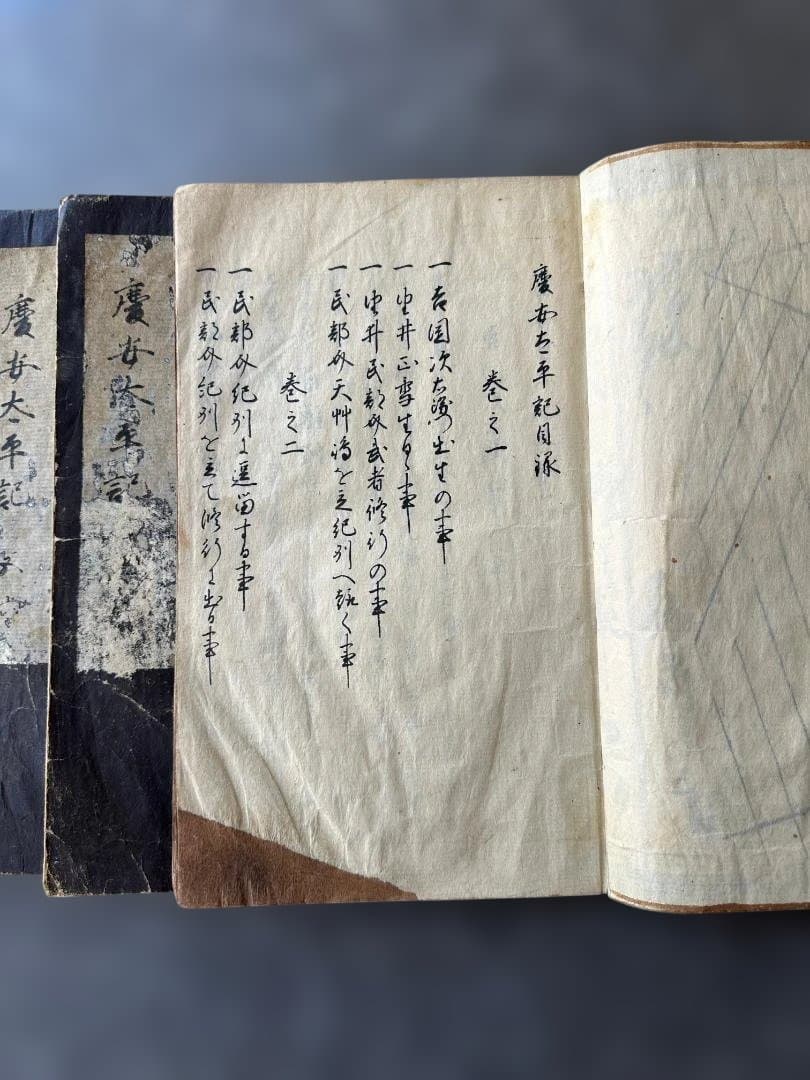 慶安太平記目録
巻之一
一吉岡次右衛門出生の事
一由井正雪生るゝ事
一由井民部助武者修行の事
一民部助天草嶋を立紀州へ趣く事
巻之二
一民部助紀州に逗留する事
一民部助紀州を立て修行に出る事
慶安平記
慶安太平記